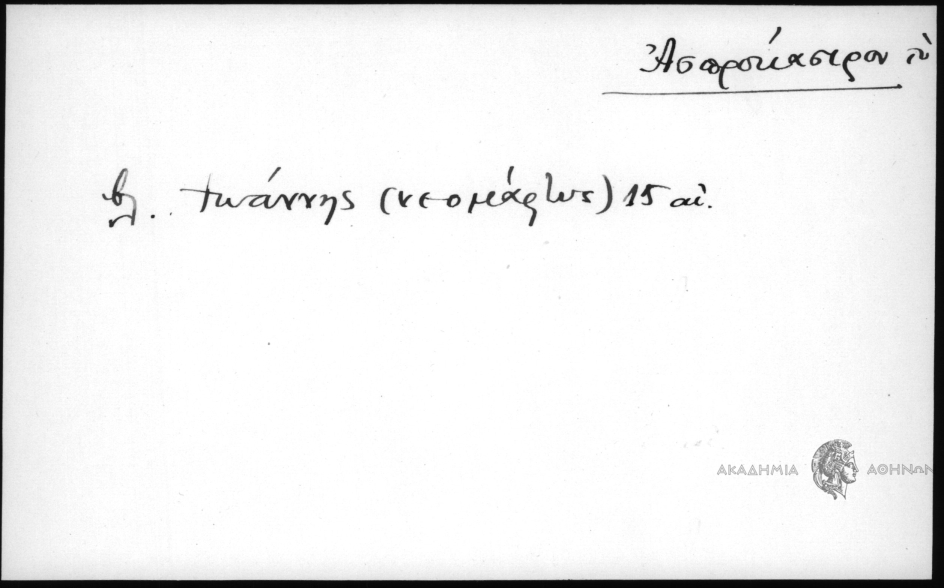 Ἀσπρόκαστρον τὸ
βλ. Ἰωάννης (νεομάρτυς) 15 αἰ.
ΑΚΑΔΗΜΙΑ ΑΘΗΝΩΝ